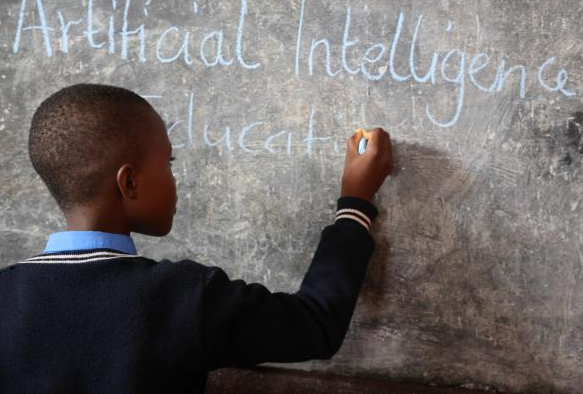 Artificial Intelligence
Educati